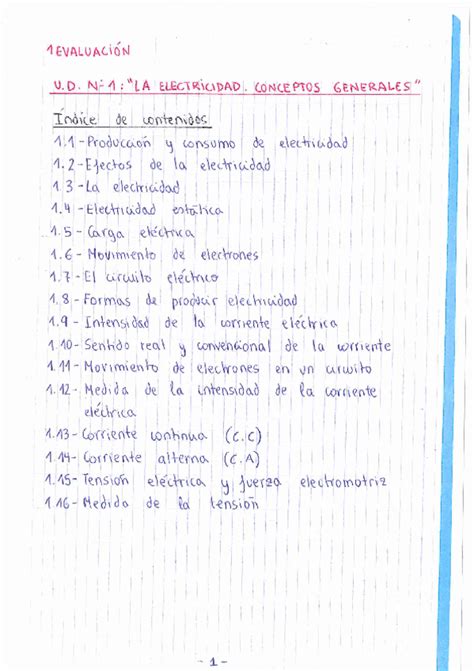 1 EVALUACIÓN
U.D. Nº 1: "LA ELECTRICIDAD. CONCEPTOS GENERALES"
Índice de contenidos
1.1 - Producción y consumo de electricidad
1.2 - Efectos de la electricidad
1.3 - La electricidad
1.4 - Electricidad estática
1.5 - Carga eléctrica
1.6 - Movimiento de electrones
1.7 - El circuito eléctrico
1.8 - Formas de producir electricidad
1.9 - Intensidad de la corriente eléctrica
1.10 - Sentido real y convencional de la corriente
1.11 - Movimiento de electrones en un circuito
1.12 - Medida de la intensidad de la corriente
eléctrica
1.13 - Corriente continua (C.C)
1.14 - Corriente alterna (C.A)
1.15 - Tensión eléctrica y fuerza electromotriz
1.16 - Medida de la tensión
- 1 -